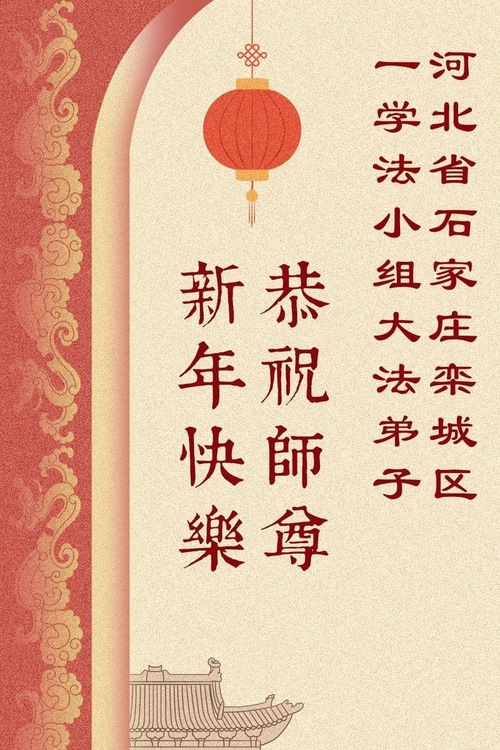 河北省石家庄栾城区
一学法小组大法弟子
恭祝師尊
新年快樂